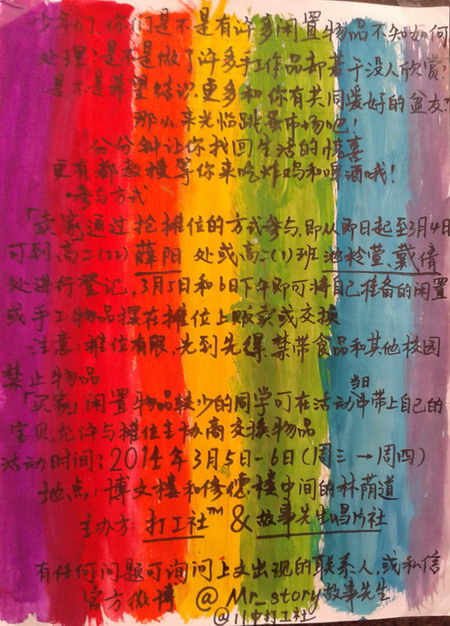 少年们,你们是不是有许多闲置物品不知如何
处理?是不是做了许多手工作品却苦于没人欣赏?
是不是希望结识更多和你有共同爱好的盆友?
那么来光临跳蚤市场吧!
分分钟让你找回生活的惊喜
更有都教授等你来吃炸鸡和啤酒哦!
参与方式
「卖家」通过抢摊位的方式参与,即从即日起至3月4日
可到高二(12)薛阳 处或高二(1)班池柃萱、戴倩
处进行登记,3月5日和6日下午即可将自己准备的闲置
或手工物品摆在摊位上贩卖或交换
注意:摊位有限,先到先得 禁带食品和其他校园
禁止物品
「买家」闲置物品较少的同学可在活动当日中带上自己的
宝贝,允许与摊位主协商交换物品
活动时间:2014年3月5日-6日(周三→周四)
地点:博文楼和修德楼中间的林荫道
主办方:打工社™ & 故事先生唱片社
有任何问题可询问上文出现的联系人,或私信
官方微博 @Mr_story故事先生
@八中打工社